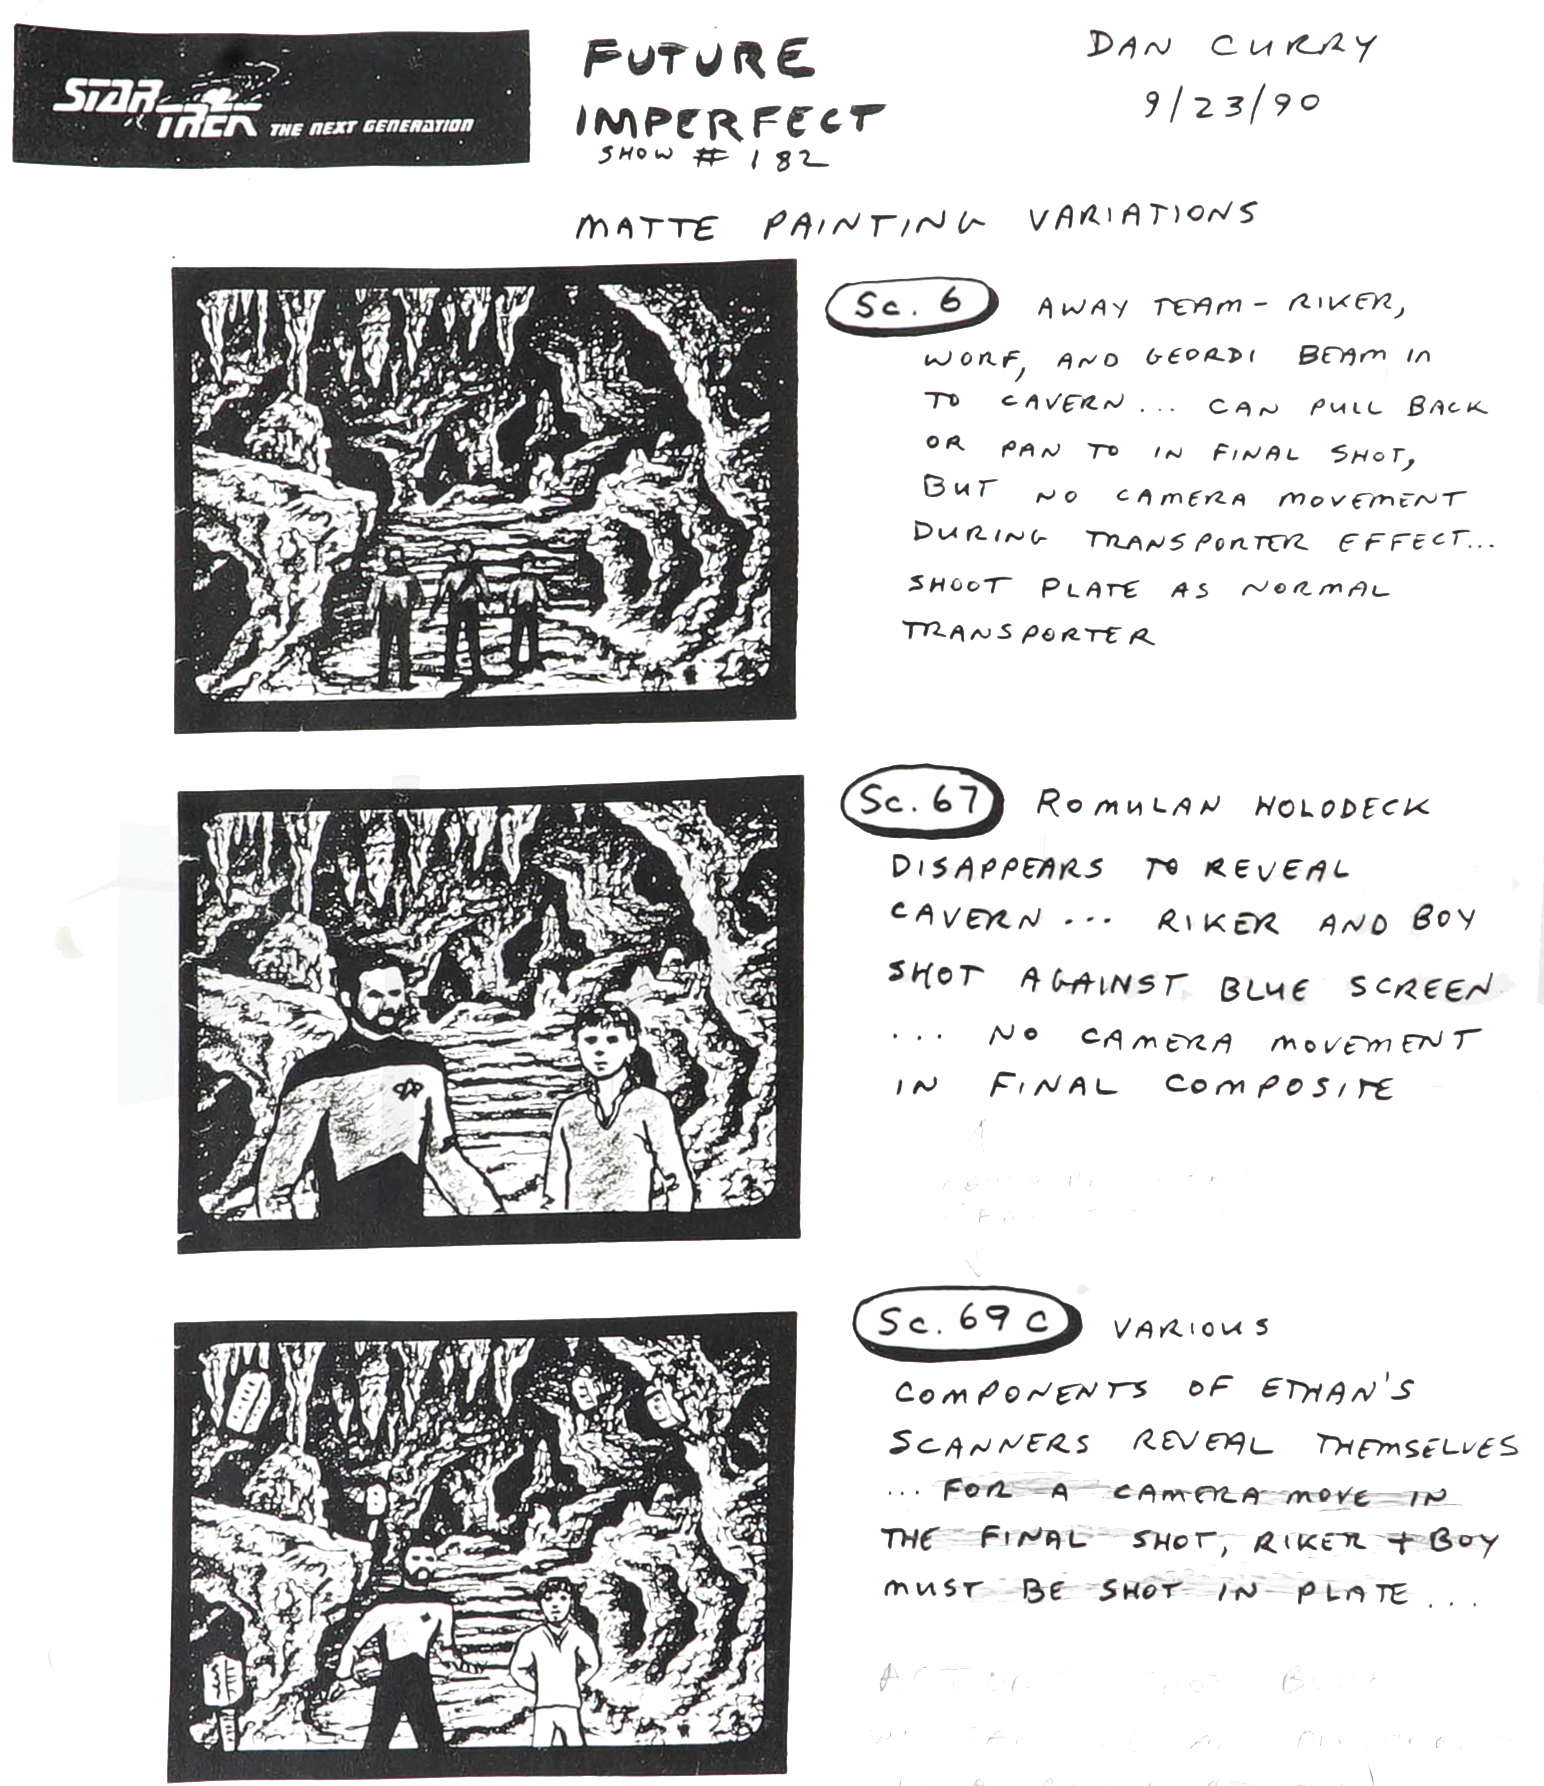 STAR TREK THE NEXT GENERATION
FUTURE
IMPERFECT
SHOW # 182
DAN CURRY
9/23/90
MATTE PAINTING VARIATIONS
Sc. 6 AWAY TEAM - RIKER,
WORF, AND GEORDI BEAM IN
TO CAVERN... CAN PULL BACK
OR PAN TO IN FINAL SHOT,
BUT NO CAMERA MOVEMENT
DURING TRANSPORTER EFFECT...
SHOOT PLATE AS NORMAL
TRANSPORTER
Sc. 67 ROMULAN HOLODECK
DISAPPEARS TO REVEAL
CAVERN... RIKER AND BOY
SHOT AGAINST BLUE SCREEN
... NO CAMERA MOVEMENT
IN FINAL COMPOSITE
Sc. 69 C VARIOUS
COMPONENTS OF ETHAN'S
SCANNERS REVEAL THEMSELVES
... FOR A CAMERA MOVE IN
THE FINAL SHOT, RIKER + BOY
MUST BE SHOT IN PLATE...